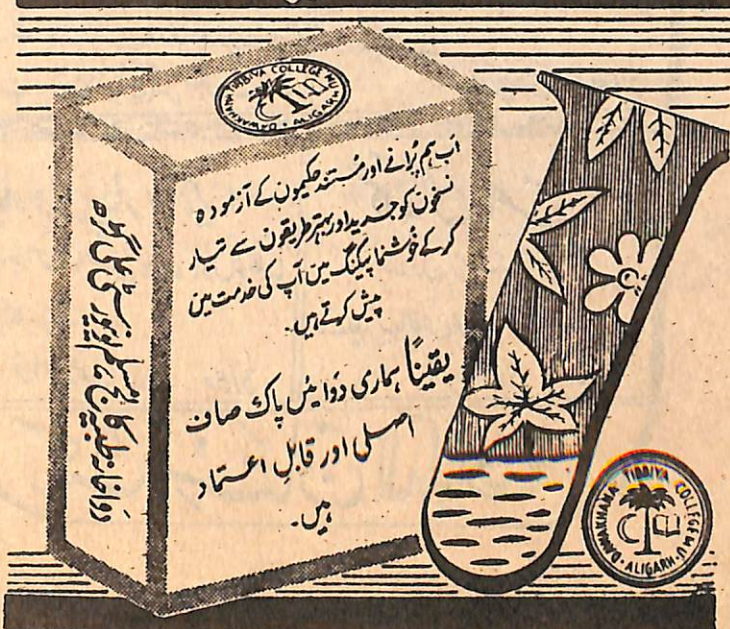 DAWAKHANA TIBBIYA COLLEGE M.U. ALIGARH
اب ہم پُرانے اور مُستند حکیموں کے آزمودہ
نسخوں کو جدید اور بہتر طریقوں سے تیار
کر کے خوشنما پیکنگ میں آپ کی خدمت میں
پیش کرتے ہیں۔
یقیناً ہماری دوائیں پاک صاف
اصلی اور قابلِ اعتماد
ہیں۔
دواخانہ طبیہ کالج مسلم یونیورسٹی علی گڑھ
DAWAKHANA TIBBIYA COLLEGE M.U. ALIGARH